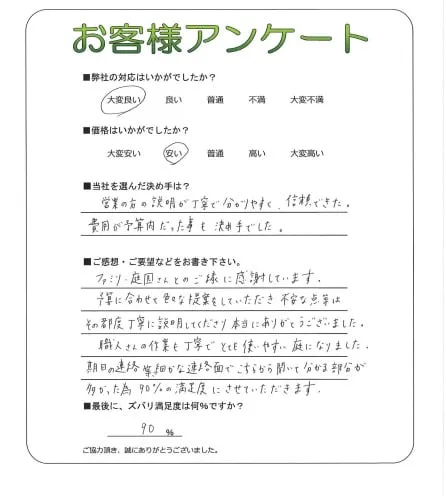 お客様アンケート
■弊社の対応はいかがでしたか?
大変良い 良い 普通 不満 大変不満
■価格はいかがでしたか?
大変安い 安い 普通 高い 大変高い
■当社を選んだ決め手は?
営業の方の説明が丁寧で分かりやすく、信頼できた。
費用が予算内だった事も決め手でした。
■ご感想・ご要望などをお書き下さい。
ファミリー庭園さんとのご縁に感謝しています。
予算に合わせて色々な提案をしていただき不安な点等は
その都度丁寧に説明してくださり本当にありがとうございました。
職人さんの作業も丁寧でとても使いやすい庭になりました。
期日の連絡等細かな連絡面でこちらから聞いて分かる部分が
多かった為90%の満足度にさせていただきます。
■最後に、ズバリ満足度は何%ですか?
90 %
ご協力頂き、誠にありがとうございました。